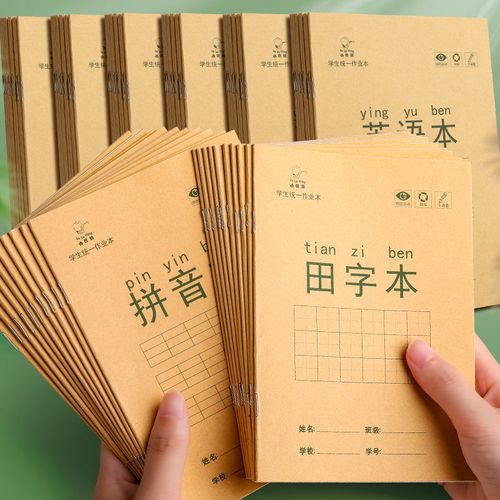 学生统一作业本
学生统一作业本
学生统一作业本
学生统一作业本
学生统一作业本
学生统一作业本
ying yu ben
英语本
学生统一作业本
pin yin b
拼音
学生统一作业本
tian zi ben
田字本
姓名:
班级:
学校:
学号:
姓名:
学校: